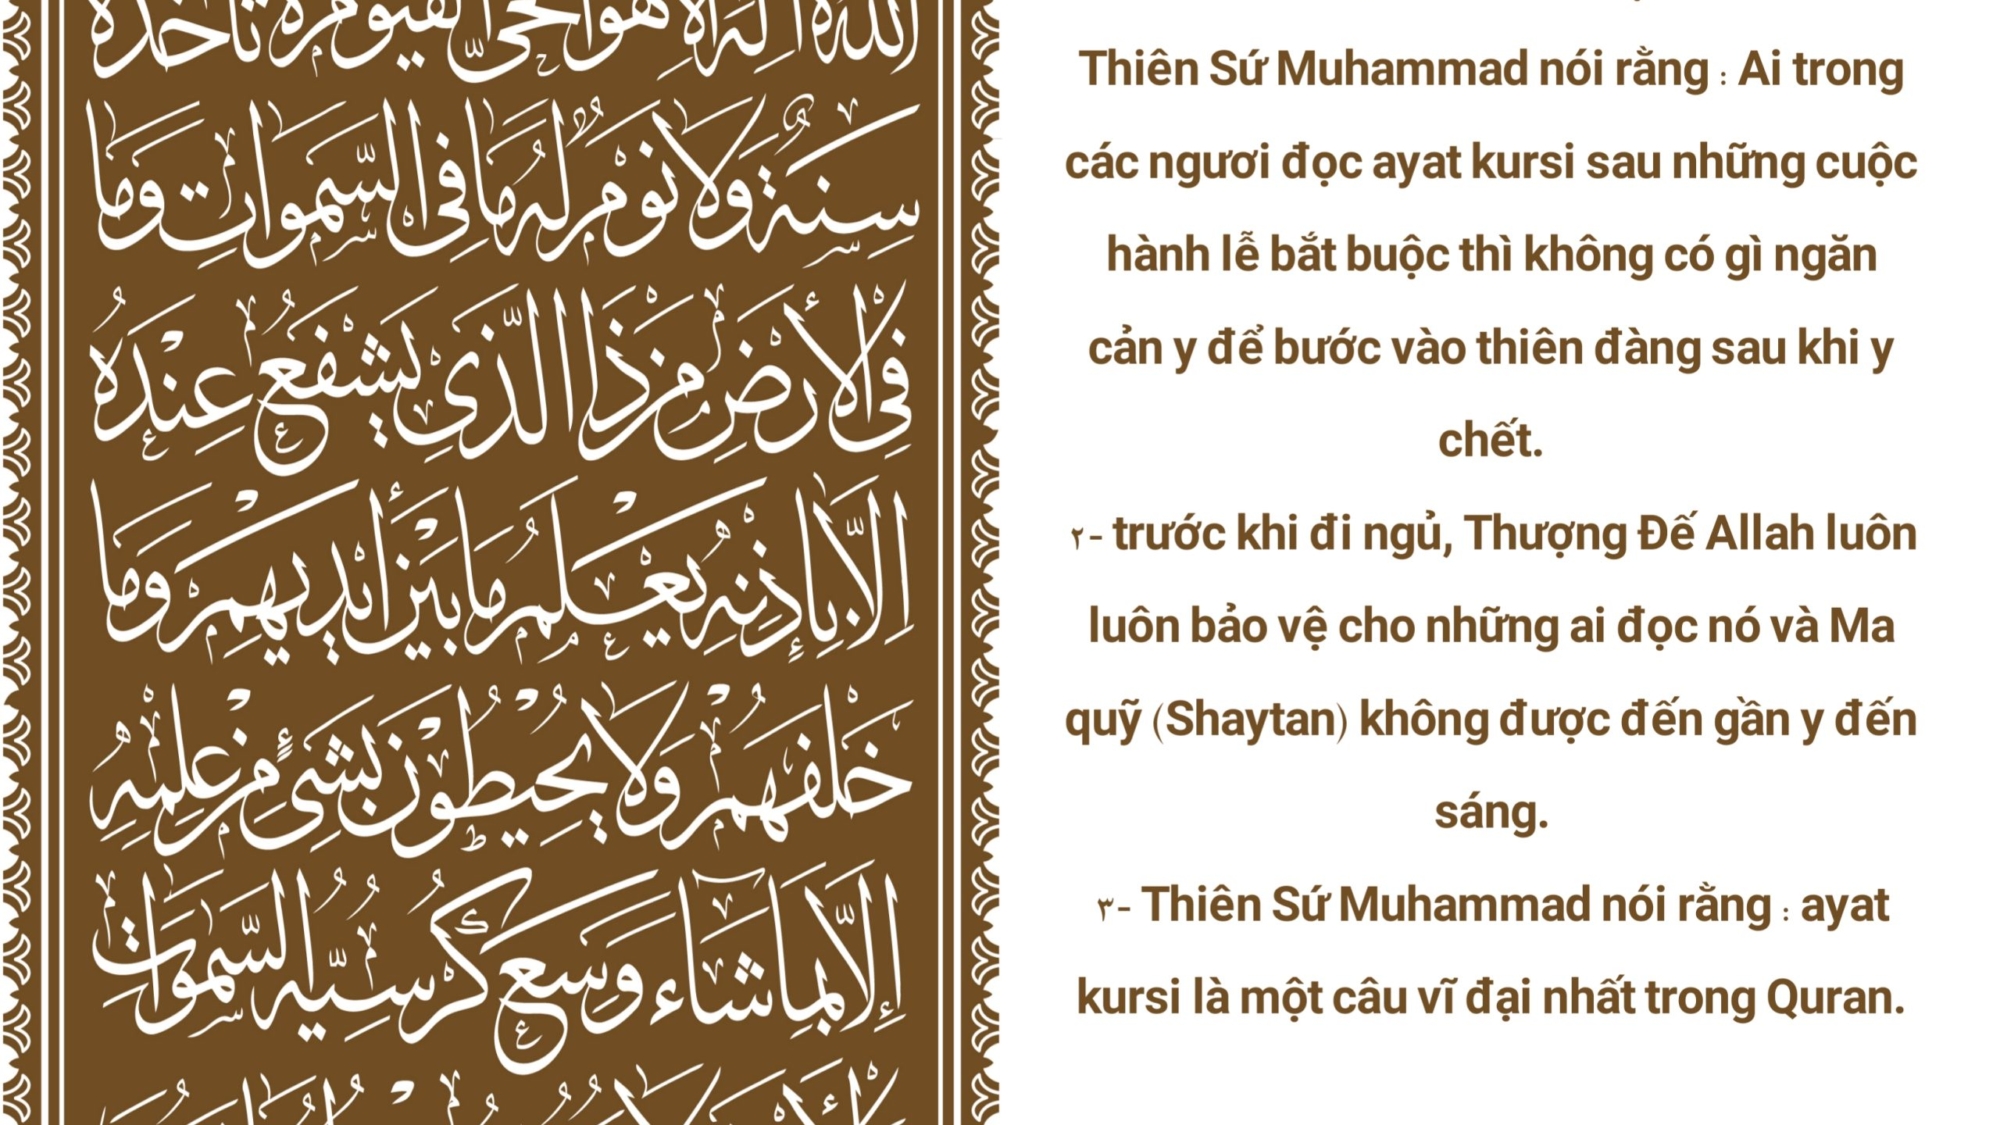 الله لا إله إلا هو الحي القيوم لا تأخذه
سنة ولا نوم له ما في السموات وما
في الأرض من ذا الذي يشفع عنده
إلا بإذنه يعلم ما بين أيديهم وما
خلفهم ولا يحيطون بشيء من علمه
إلا بما شاء وسع كرسيه السموات
Thiên Sứ Muhammad nói rằng : Ai trong
các ngươi đọc ayat kursi sau những cuộc
hành lễ bắt buộc thì không có gì ngăn
cản y để bước vào thiên đàng sau khi y
chết.
٢- trước khi đi ngủ, Thượng Đế Allah luôn
luôn bảo vệ cho những ai đọc nó và Ma
quỹ (Shaytan) không được đến gần y đến
sáng.
٣- Thiên Sứ Muhammad nói rằng : ayat
kursi là một câu vĩ đại nhất trong Quran.